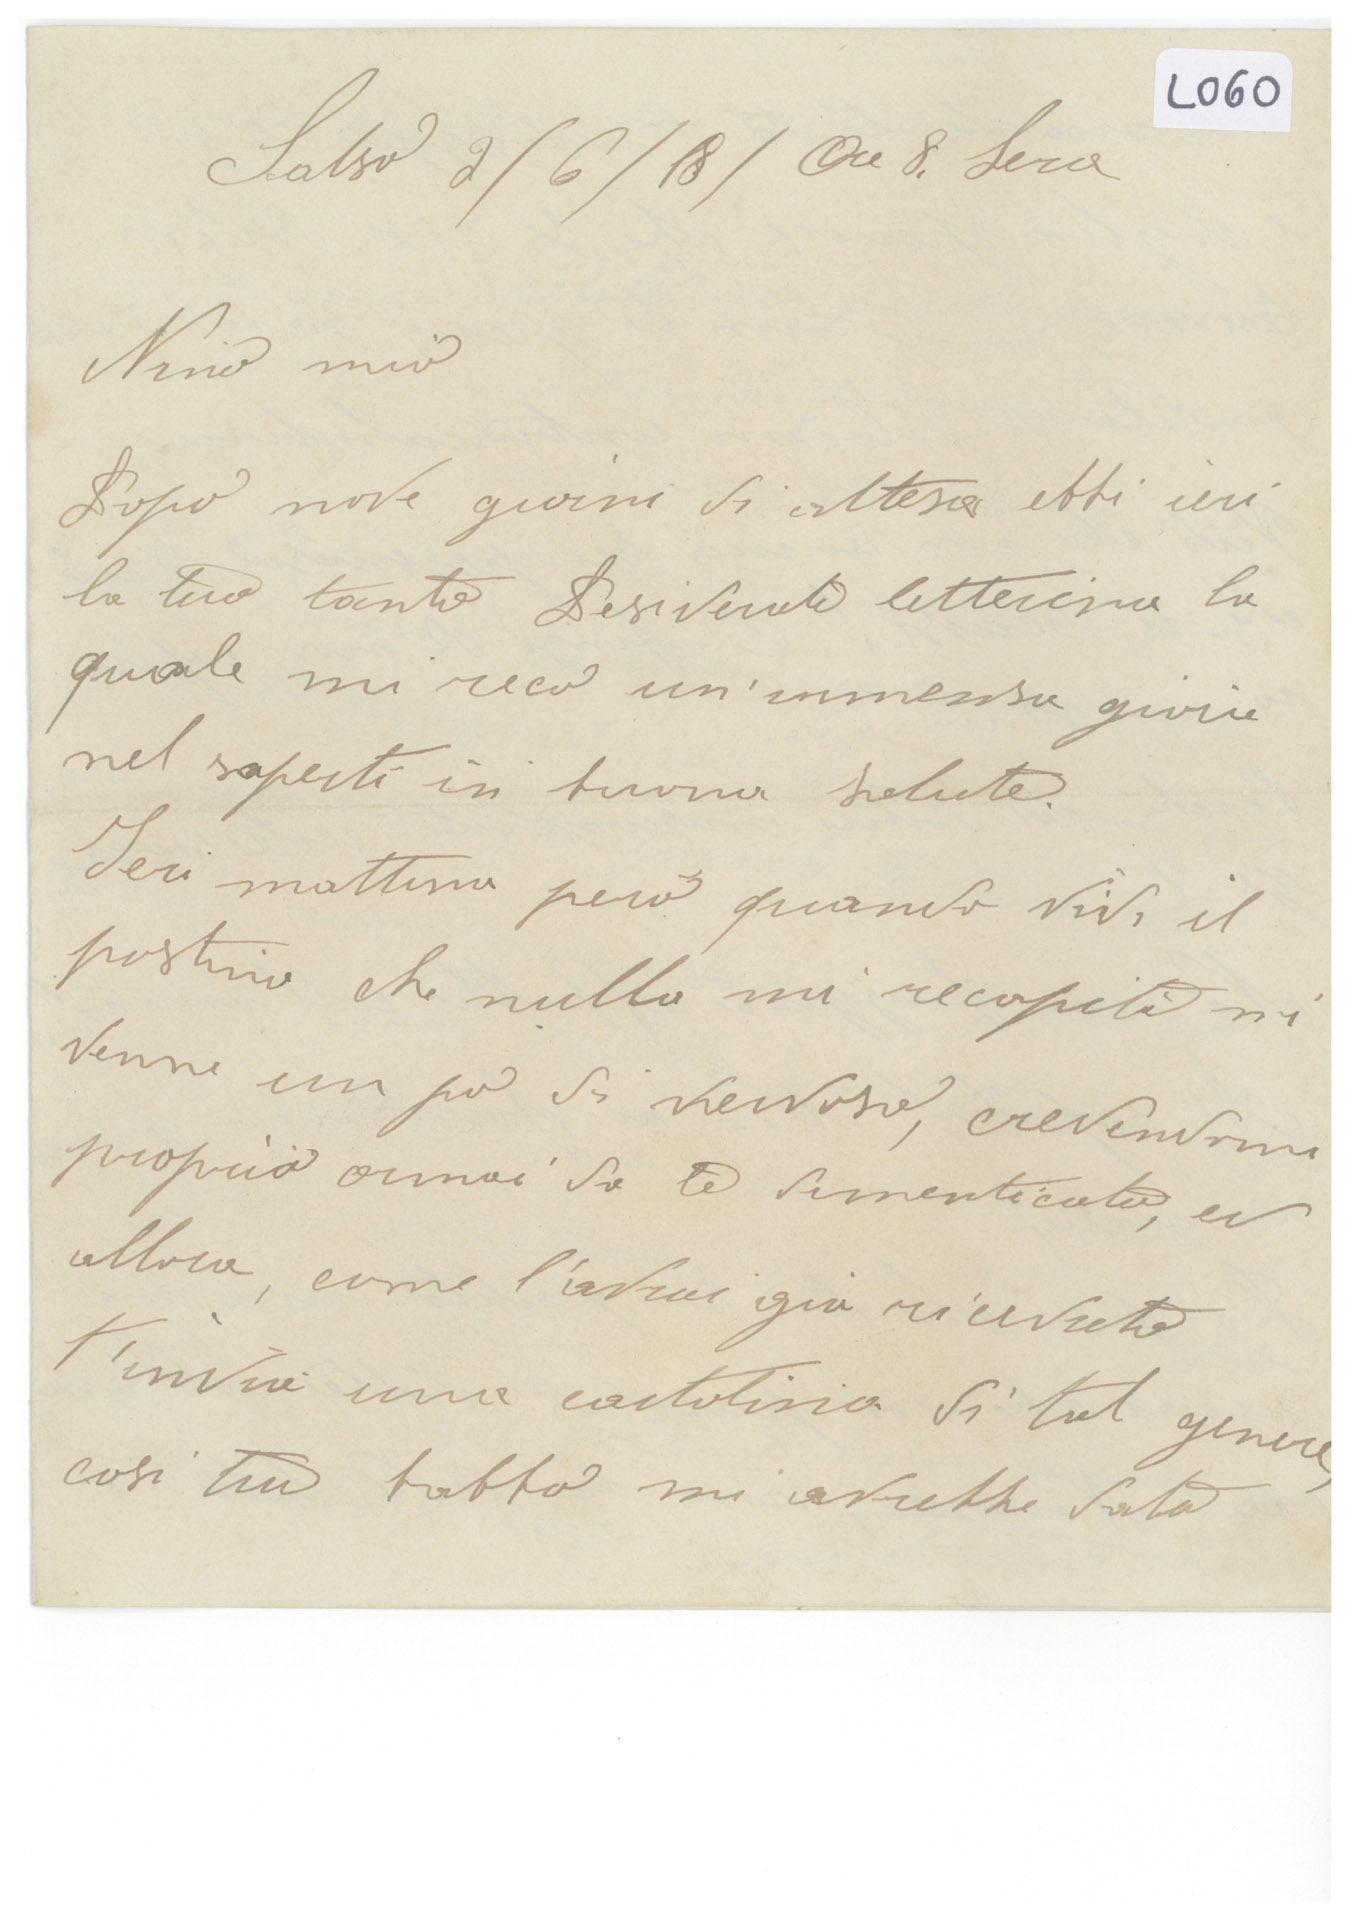 L060
Salso 2/6/18/ Ore 8. Sera
Nino mio
Dopo nove giorni di attesa ebbi ieri
la tua tanto desiderata letterina la
quale mi recò un'immensa gioia
nel saperti in buona salute.
Ieri mattina però quando vidi il
postino che nulla mi recapitò mi
venne un pò di nervoso, credendomi
proprio ormai da te dimenticata, ed
allora, come l'avrai già ricevuta
t'inviai una cartolina di tal genere,
così tuo babbo mi avrebbe dato